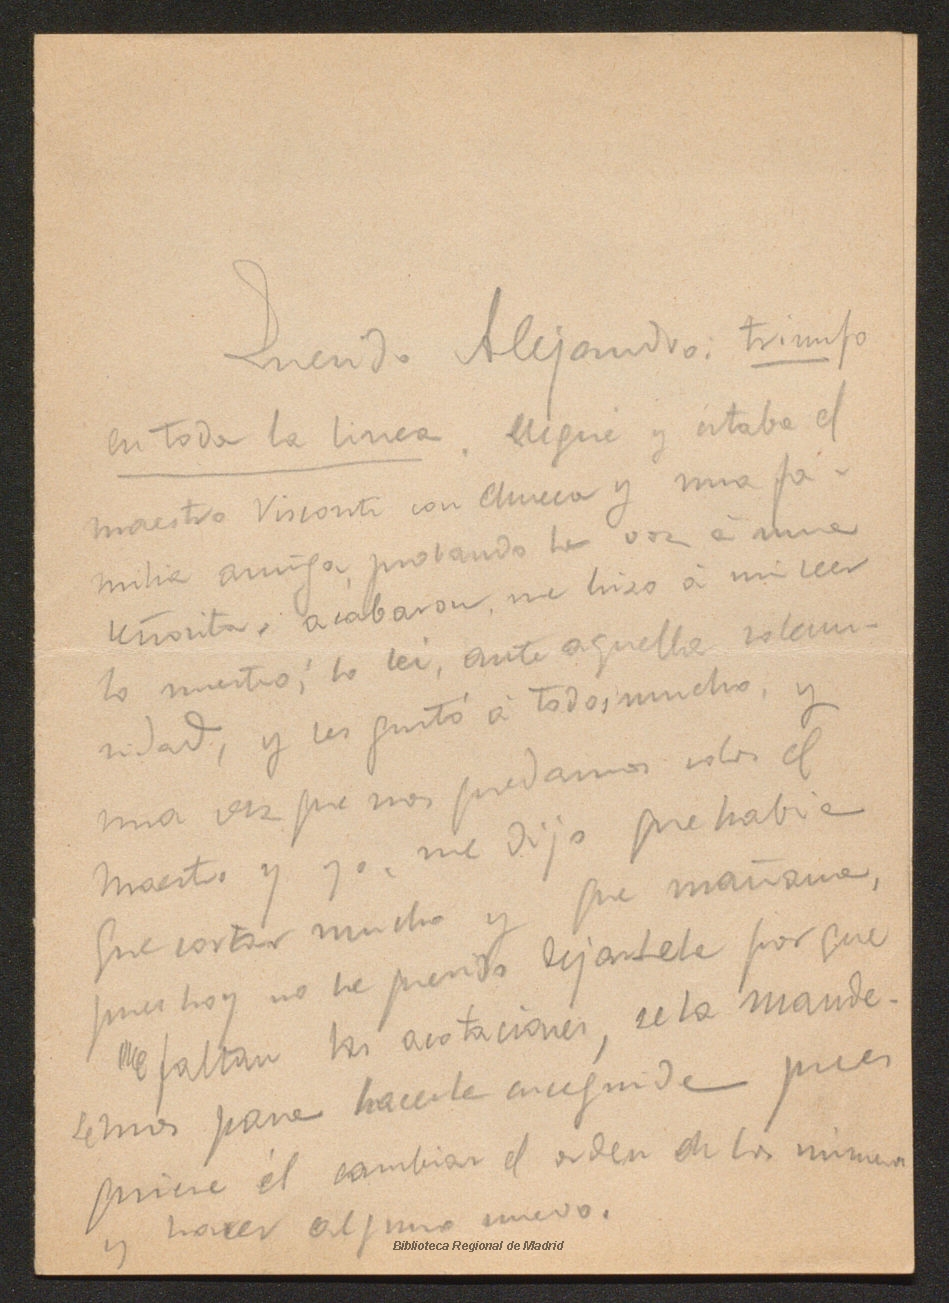 Querido Alejandro: triunfo
en toda la linea. Llegué y estaba el
maestro Visconti con Chueca y una fa-
milia amiga, probando la voz á una
señorita; acabaron, me hizo á mi leer
lo nuestro; lo lei, ante aquella solem-
nidad, y les gustó á todos, mucho, y
una vez que nos quedamos solos el
Maestro y yo, me dijo que habia
que cortar mucho y que mañana,
pues hoy no he querido dejarsela por que
me faltan las acotaciones, se la mande-
semos para hacerla enseguida pues
quiere él cambiar el orden de los números
y hacer alguno nuevo.
Biblioteca Regional de Madrid